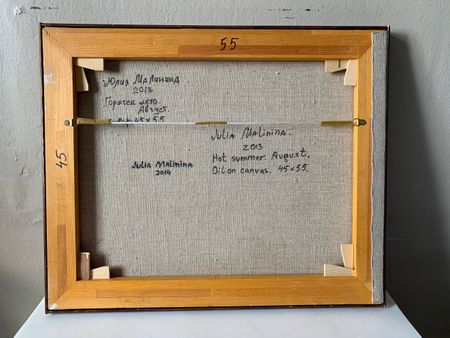 55
45
Юлия Малинина
2013
Горячее лето.
Август.
45x55
Julia Malinina.
2013
Hot summer. August.
Oil on canvas. 45x55.
Julia Malinina
2014